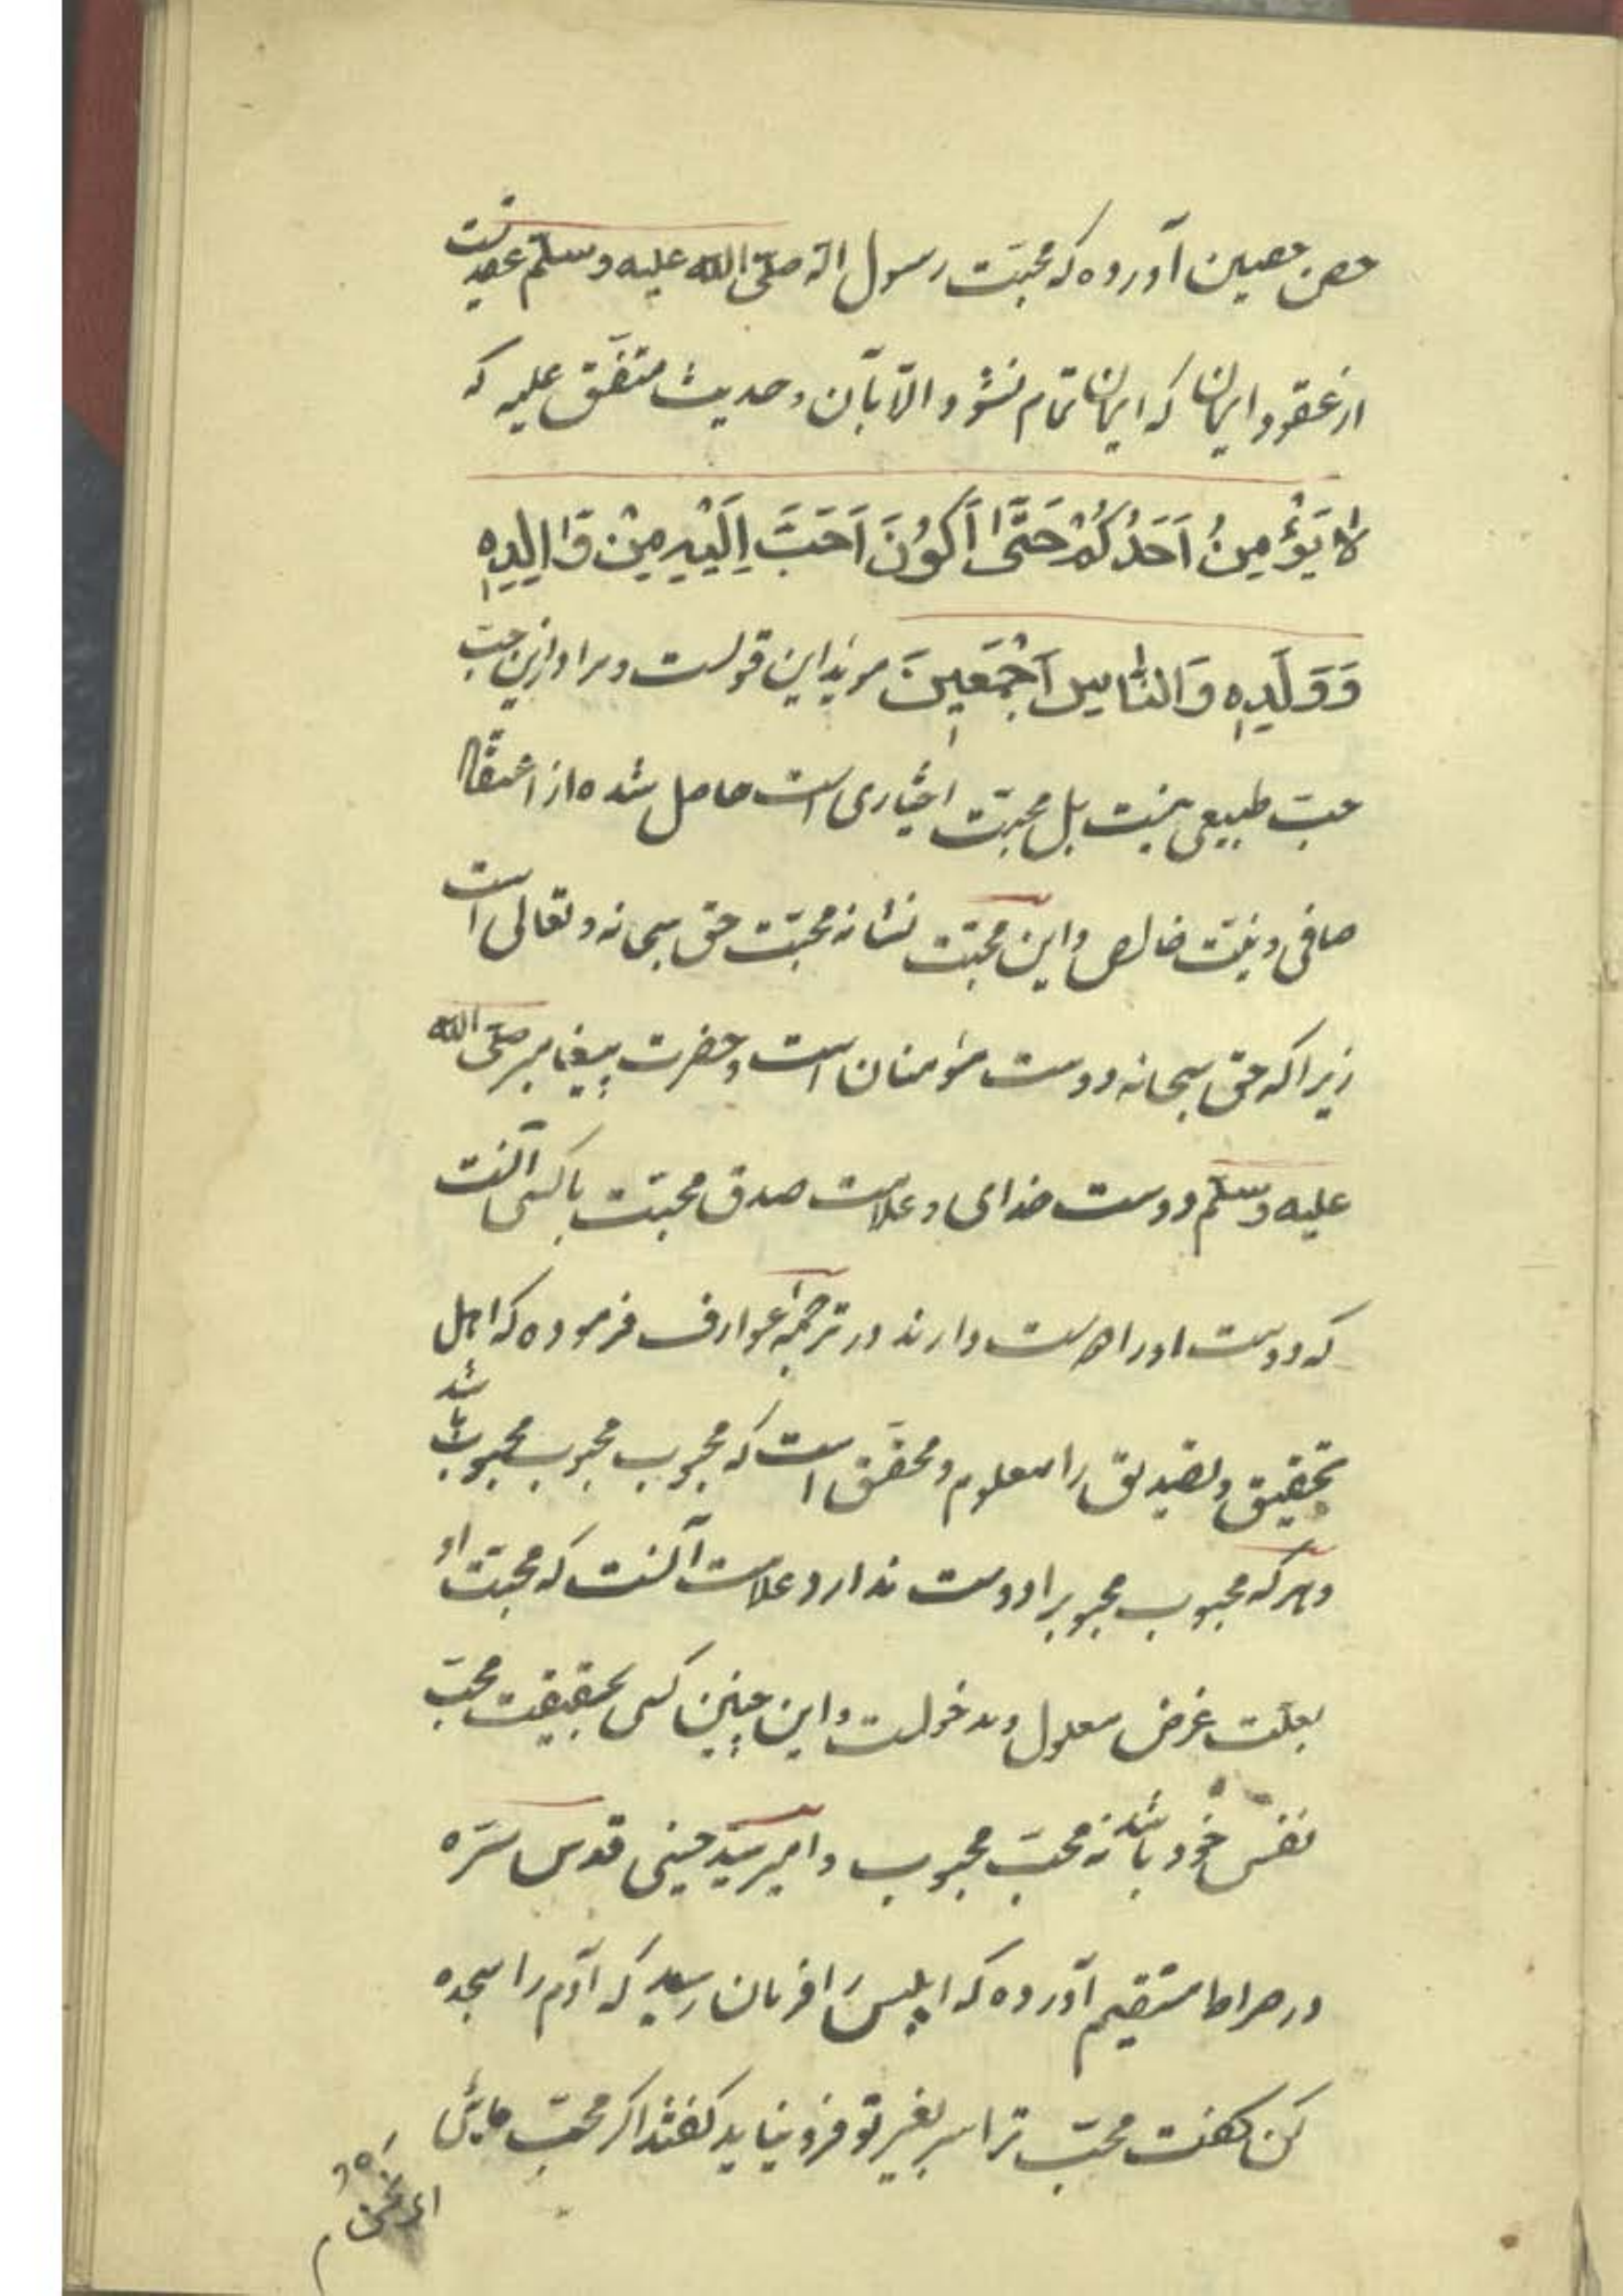 حصن حصین آورده که محبّت رسول الله صلّی الله علیه وسلّم عقدیست
از عقود ایمان که ایمان تمام نشود الّا بآن و حدیث متّفق علیه که
لا یُؤْمِنُ اَحَدُکُمْ حَتّٰی اَکُوْنَ اَحَبَّ اِلَیْهِ مِنْ وَالِدِهٖ
وَوَلَدِهٖ وَالنَّاسِ اَجْمَعِیْنَ موید این قولست و مراد ازین حبّ
حبّ طبیعی نیست بل محبّت اختیاری است حاصل شده از اعتقاد
صافی و نیّت خالص و این محبّت نشانه محبّت حق سبحانه و تعالی است
زیرا که حق سبحانه دوست مؤمنان است و حضرت پیغامبر صلّی الله
علیه وسلّم دوست خدای و علامت صدق محبّت با کسی آنست
که دوست او را دوست دارند در ترجمه عوارف فرموده که اهل
تحقیق و تصدیق را معلوم و محقّق است که محبوب محبوب محبوب باشد
و هر که محبوب محبوبرا دوست ندارد علامت آنست که محبّت او
بعلّت غرض معلول و مدخولست و این چنین کسی بحقیقت محبّ
نفس خود باشد نه محبّ محبوب و امیر سیّد حسینی قدس سرّه
در صراط مستقیم آورده که ابلیس را فرمان رسید که آدم را سجده
کن گفت محبّ ترا سر بغیر تو فرو نیاید گفتند اگر محبّ مایی